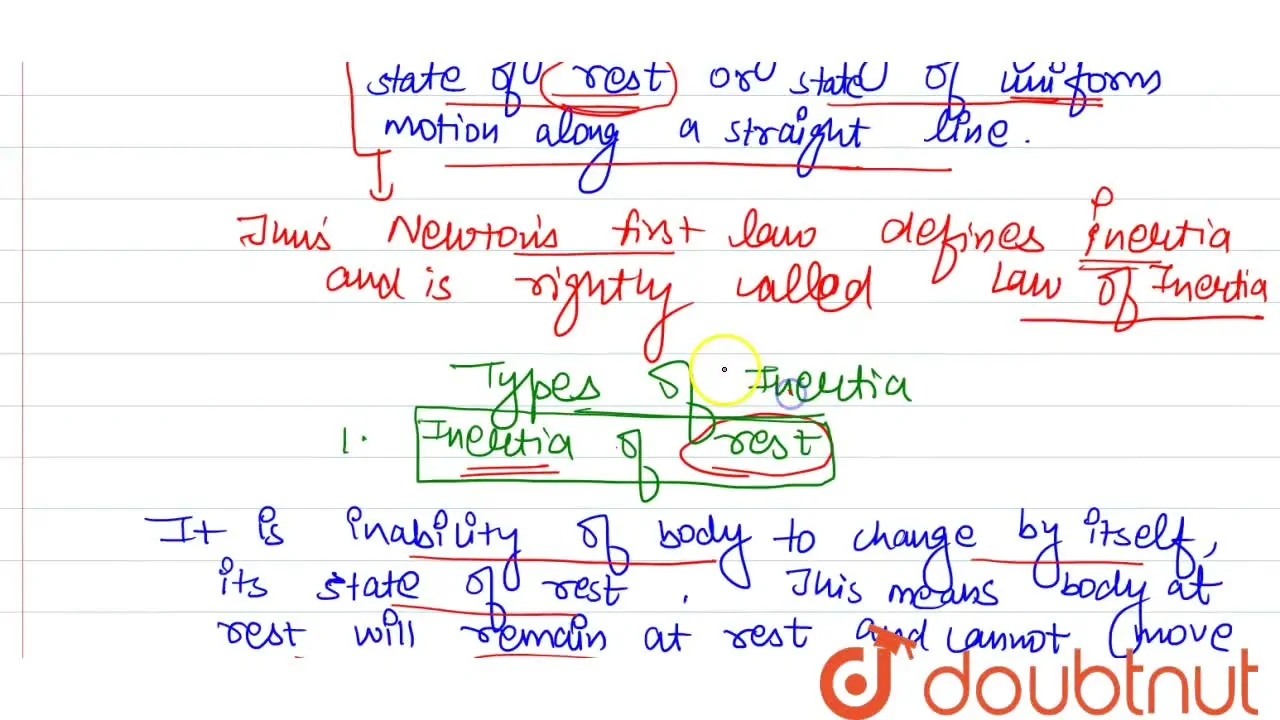 state of rest or state of uniform
motion along a straight line.
Thus Newton's first law defines inertia
and is rightly called Law of Inertia
Types of Inertia
1. Inertia of rest
It is inability of body to change by itself,
its state of rest. This means body at
rest will remain at rest and cannot (move
doubtnut